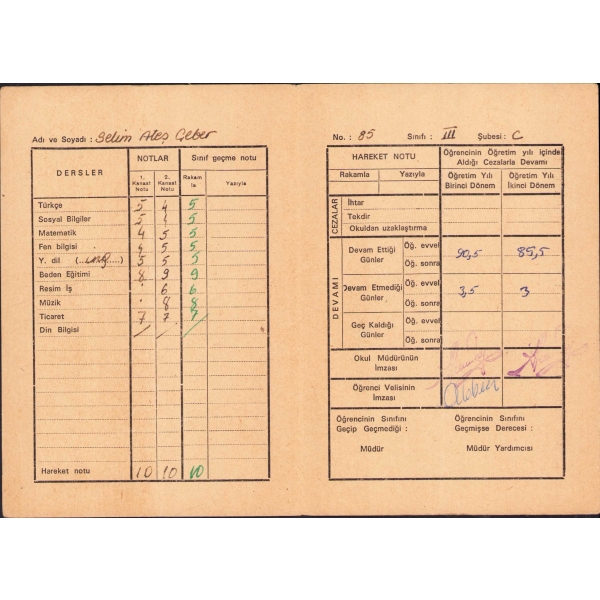 Adı ve Soyadı : Selim Ateş Geber
DERSLER NOTLAR Sınıf geçme notu
1. Kanaat Notu 2. Kanaat Notu Rakamla Yazıyla
Türkçe 5 4 5
Sosyal Bilgiler 5 4 5
Matematik 4 5 5
Fen bilgisi 4 5 5
Y. dil (......) 5 5 5
Beden Eğitimi 8 9 9
Resim İş . 6 6
Müzik . 8 8
Ticaret 7 7 7
Din Bilgisi / /
Hareket notu 10 10 10
No. : 85 Sınıfı : III Şubesi : C
HAREKET NOTU Öğrencinin Öğretim yılı içinde Aldığı Cezalarla Devamı
Rakamla Yazıyla Öğretim Yılı Birinci Dönem Öğretim Yılı İkinci Dönem
CEZALAR
İhtar
Tekdir
Okuldan uzaklaştırma
DEVAMI
Devam Ettiği Günler Öğ. evvel 90,5 85,5
Öğ. sonra
Devam Etmediği Günler Öğ. evvel 3,5 3
Öğ. sonra
Geç Kaldığı Günler Öğ. evvel
Öğ. sonra
Okul Müdürünün İmzası
Öğrenci Velisinin İmzası
Öğrencinin Sınıfını Geçip Geçmediği :
Müdür
Öğrencinin Sınıfını Geçmişse Derecesi :
Müdür Yardımcısı